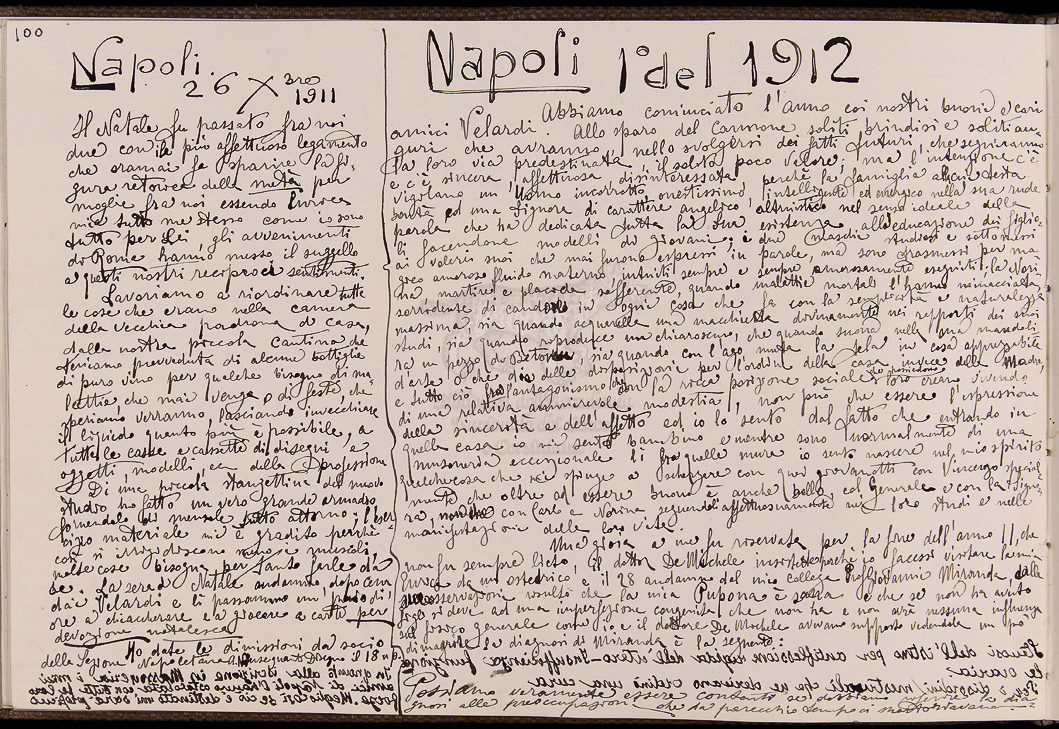 100
Napoli.
26 Xbre
1911
Il Natale fu passato fra noi
due con il più affettuoso legamento
che oramai fa sparire la fi-
gura retorica della metà per
moglie fra noi essendo Enrica
mia tutto me stesso come io sono
tutto per Lei, gli avvenimenti
di Roma hanno messo il suggello
a questi nostri reciproci sentimenti.
Lavoriamo a riordinare tutte
le cose che erano nella camera
della vecchia padrona di casa,
dalla nostra piccola cantina che
abbiamo provveduta di alcune bottiglie
di puro vino per qualche bisogno di ma-
lattie che mai venga, o di feste, che
speriamo verranno, lasciando invecchiare
il liquido quanto più è possibile, a
tutte le casse e cassette di disegni e
oggetti, modelli, ecc. della Professione
Di una piccola stanzettina del nuovo
studio ho fatto un vero grande armadio
fornendolo di mensole tutto attorno;
cizio materiale mi è gradito perché
così si irrigidiscono meno i muscoli,
molte cose bisogna per tanto farle da
se. La sera di Natale andammo dopo cena
dai Velardi e li passammo un paio di
ore a chiacchierare e a giocare a carte per
devozione natalesca
Ho date le dimissioni da socio
della Sezione Napoletana il 18 u.p.
Napoli 1° del 1912
Abbiamo cominciato l'anno coi nostri buoni e cari
amici Velardi. Allo sparo del cannone soliti brindisi e soliti au-
guri che avranno, nello svolgersi dei fatti futuri che seguiranno
la loro via predestinata, il solito poco valore; ma l'intenzione c'è
e c'è sincera affettuosa disinteressata perché la famiglia alla cui testa
vigilano un Uomo incorrotto onestissimo, intelligente ed energico nella sua rude
bontà ed una Signora di carattere angelico, altruistico nel senso ideale della
parola che ha dedicata tutta la Sua esistenza all'educazione dei figlio-
li facendone modelli di giovani; i due maschi studiosi e sottomessi
ai voleri suoi che mai furono espressi in parole, ma sono trasmessi per ma-
gico amoroso fluido materno, intuiti sempre e sempre amorosamente eseguiti; la Nori-
na martire e placida sofferente, quando malattie mortali l'hanno minacciata,
sorridente di candore in ogni cosa che fa con la semplicità e naturalezza
massima sia quando acquerella una macchietta divinamente nei rapporti dei suoi
studi sia quando riproduce un chiaroscuro, che quando suona nella sua mandoli-
ra un pezzo di Beethoven sia quando con l'ago muta la tela in cosa apprezzabile
d'arte o che dia delle disposizioni per l'ordine della casa invece della Madre,
e tutto ciò fra l'antagonismo con la ricca posizione sociale
di una relativa ammirevole modestia, non può che essere l'espressione
della sincerità e dell'affetto ed io lo sento dal fatto che entrando in
quella casa io mi sento bambino e mentre sono normalmente di una
musoneria eccezionale li fra quelle mura io sento nascere nel mio spirito
qualche cosa che mi spinge a scherzare con quei giovanotti con Vincenzo special-
mente che oltre ad essere buono è anche bello, col Generale e con la Signo-
ra, nonché con Carlo e Norina seguendo affettuosamente nei loro studi e nelle
manifestazioni della loro vita.
Una gioia a me fu riservata per la fine dell'anno 11, che
non fu sempre lieto, il dottor De Michele insistette perché io facessi visitare la mia
Enrica da un ostetrico e il 28 andammo dal mio collega Prof Giovanni Miranda, dalla
osservazione risultò che la mia Pupona è sana e che se non ha avuto
figli si deve ad una imperfezione congenita che non ha e non avrà nessuna influenza
sul fisico generale come io e il dottore De Michele avevamo supposto vedendola un po'
dimagrire la diagnosi di Miranda è la seguente:
Possiamo veramente essere contenti
gnosi alle preoccupazioni che da parecchio tempo ci